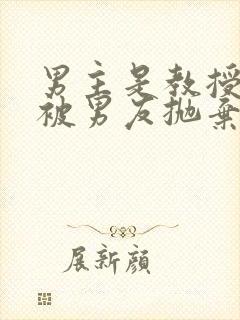 男主是教授
被男友抛弃
展新颜